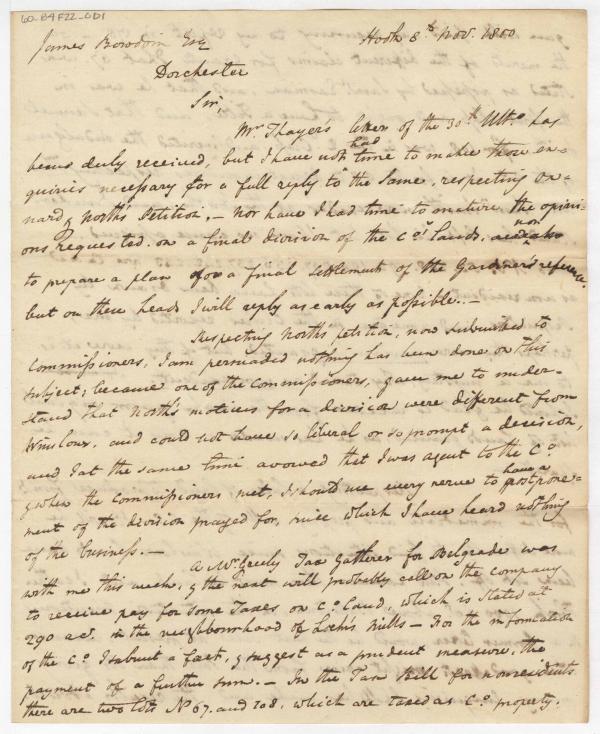 60-B4F22-001
James Bowdoin Esq
Hook 8th Nov. 1800
Dorchester
Sir,
Mr. Thayer's letter of the 30th Ulto. has
been duly received, but I have not had time to make those en-
quiries necessary for a full reply to the Same, respecting
North's Petition, – Nor have I had time to mature the opini-
ons requested. on a final division of the Co's lands, nor
to prepare a plan for a final settlement of the Gardiner's reference.
but on these heads I will reply as early as possible. –
Respecting North's petition, now submitted to
Commissioners, I am persuaded nothing has been done on this
subject; because one of the Commissioners, gave me to under-
stand that North's motives for a division were different from
Winslows, and could not have so liberal or so prompt a decision,
and I at the same time avowed that I was agent to the Co.
& when the Commissioners met, I should use every nerve to have a postpone-
ment of the division prayed for, since which I have heard nothing
of the business. –
A Mr. Greely Tax Gatherer for Belgrade was
with me this week, & the next will probably call on the company
to receive pay for some Taxes on Co. Land, which is stated at
290 acs. in the neighbourhood of Mills – For the information
of the Co. I submit a fact, & suggest as a prudent measure, the
payment of a further sum. – In the Tax Bill for nonresidents
there are two lots No 67. and 108, which are taxed as Co. property.